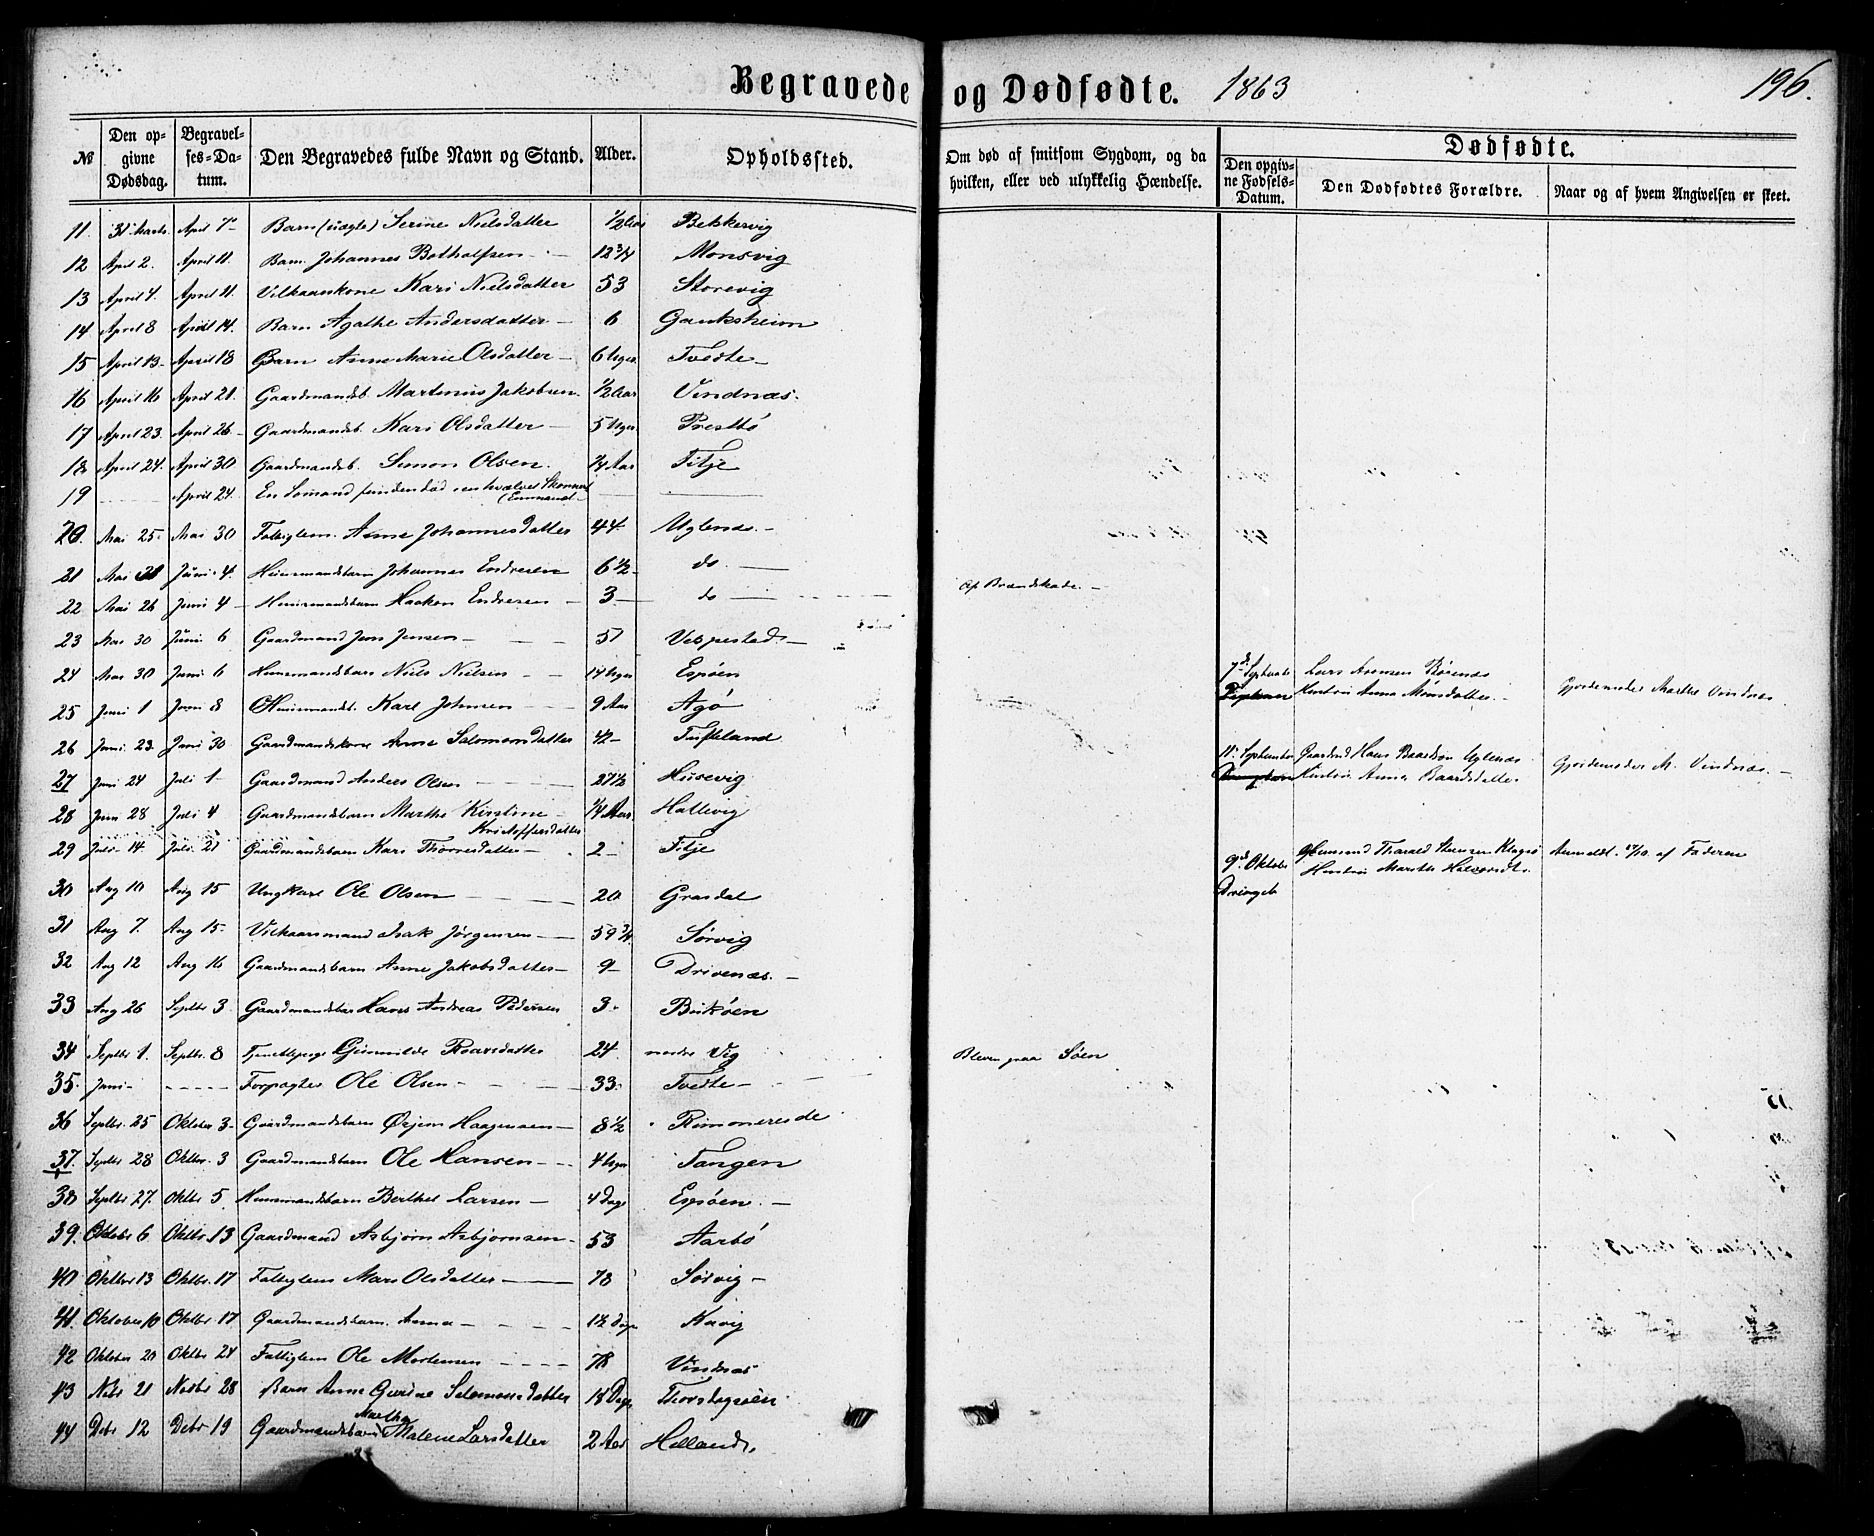 Begravede og Dødfødte. 1863 196.
№ Den opgivne Dødsdag. Begravelses-Datum. Den Begravedes fulde Navn og Stand. Alder. Opholdssted. Om død af smitsom Sygdom, og da hvilken, eller ved ulykkelig Hændelse. Dødfødte. Den opgivne Fødsels-Datum. Den Dødfødtes Forældre. Naar og af hvem Angivelsen er skeet.
11. 31. Marts April 7 Barn (uægte) Serine Nielsdatter 1/2 Aar Bekkervig
12 April 2. April 11. Barn Johannes Botholfsen 12 3/4 Monsvig
13 April 4. April 11. Vilkaarskone Kari Nielsdatter 53 Storevig
14 April 8 April 14. Barn Agathe Andersdatter 6
15 April 13 April 18 Barn Anne Marie Olsdatter 6 Uger Tvedte
16 April 16 April 21. Gaardmandsb. Martinus Jakobsen 1/2 Aar Vindnæs.
17 April 23. April 26 Gaardmandsb. Kari Olsdatter 5 Uger
18 April 24. April 30 Gaardmandsb. Simon Olsen. 1/4 Aar Fitje
19 April 24. En Sømand funden død
20. Mai 25. Mai 30 Fattiglem. Anne Johannesdatter 44. Uglenæs.
21 Mai Juni 4. Huusmandsbarn Johannes Endresen 6 1/2 do
22 Mai 26 Juni 4 Huusmandsbarn Haakon Endresen 3 do Af Brandskade.
23 Mai 30 Juni 6 Gaardmand Jens Jensen 51 Vespestad
24 Mai 30 Juni 6 Huusmandsbarn Niels Nielsen 14 Uger Espøen
7de September Lars Arensen Børenæs
Hustru Anna Monsdatter Gjordemoder Marthe Vindnæs
25 Juni 1 Juni 8 Huusmandsb. Karl Johnsen 9 Aar Agø
26 Juni 23 Juni 30 Gaardmandskone Anne Salomonsdatter 42 Tufteland
11. September Gaardmd Hans Baardsen Uglenæs Gjordemoder M. Vindnæs.
Hustru Anna Baardsdatter
27 Juni 24 Juli 1 Gaardmand Anders Olsen 27 1/2 Husevig
28 Juni 28 Juli 4 Gaardmandsbarn Marthe Kirstine Kristoffersdatter 1/4 Aar Hallevig
29 Juli 14. Juli 21 Gaardmandsbarn Kari Thorresdatter 2 Fitje
9de Oktober Huusmd Tharald Anmeldt af Faderen
Hustru Marthe
Drengeb
30 Aug 10 Aug 15 Ungkarl Ole Olsen 20 Grasdal
31 Aug 7. Aug 15 Vilkaarsmand Isak Jørgensen 59 3/4 Sørvig
32 Aug 12 Aug 16 Gaardmandsbarn Anne Jakobsdatter 9 Drivenæs.
33 Aug 26 Septbr 3 Gaardmandsbar Hans Andreas Pedersen 3 Birkøen
34 Septbr 1. Septbr. 8 Gunnilde Roarsdatter 24. nedre Vig
35. Juni Forpagter Ole Olsen 33. Tvedte Bleven paa Søen
36 Septbr. 25 Oktober 3 Gaardmandsbarn Ørjern Haagensen 8 1/2 Rimmereide
37. Septbr 28 Oktbr. 3 Gaardmandsbarn Ole Hansen 4 Uger Tangen
38 Septbr 27. Oktbr 5. Huusmandsbarn Berthel Larsen 4 Dage Espøen.
39. Oktober 6 Oktbr. 13 Gaardmand Asbjørn Asbjørnsen 53 Aarbø
40 Oktbr 13 Oktbr. 17 Fattiglem Mari Olsdatter 78 Sørvig
41. Oktober 10 Oktbr 17 Gaardmandsbarn. Anna 12 Dage Kavig
42 Oktober 20 Oktbr 24 Fattiglem Ole Mortensen 78 Vindnæs
43 Nobr 21 Novbr 28 Barn Anne Gurine Salomonsdatter 18 Dage Thorsdagsøen
44 Debr 12 Debr 19 Gaardmandsbarn Marthe Malene Larsdatter 2 Aar Holland